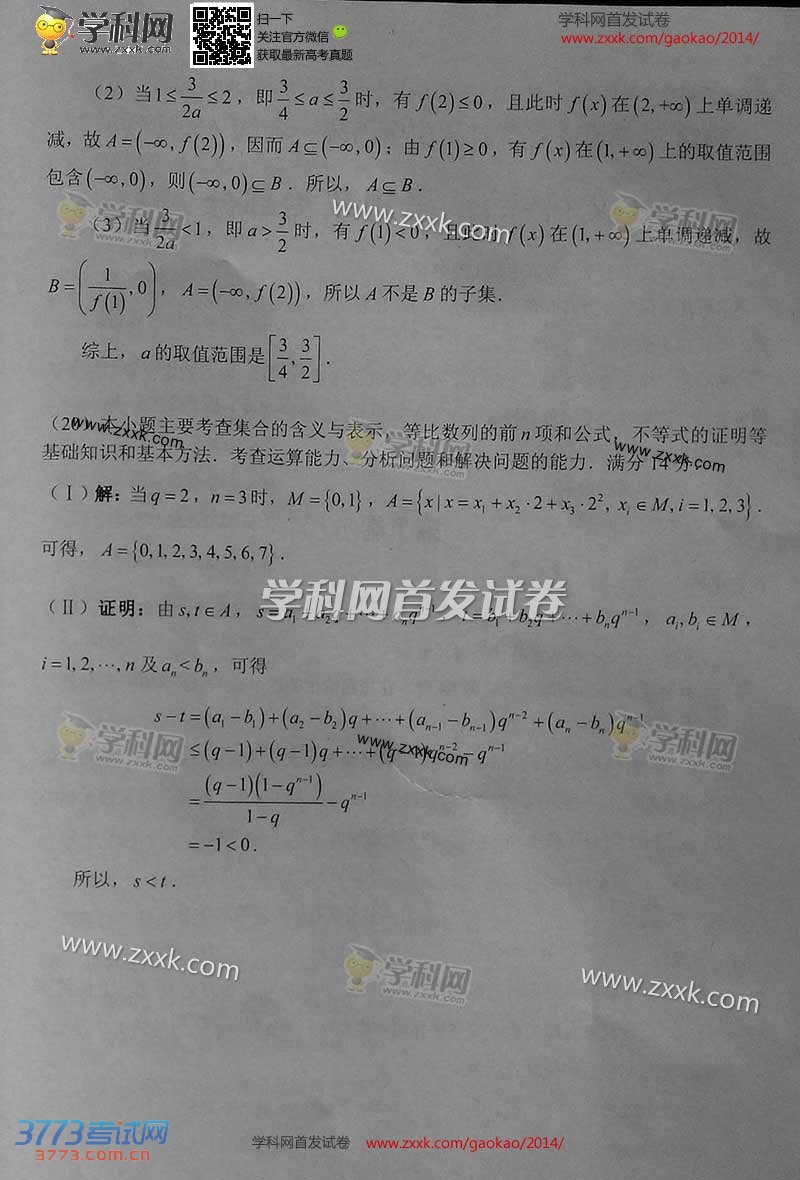 学科网
www.zxxk.com
扫一下
关注官方微信
获取最新高考真题
学科网首发试卷
www.zxxk.com/gaokao/2014/
（2）当1≤3/(2a)≤2，即3/4≤a≤3/2时，有f(2)≤0，且此时f(x)在(2,+∞)上单调递
减，故A=(−∞,f(2))，因而A⊆(−∞,0)；由f(1)≥0，有f(x)在(1,+∞)上的取值范围
包含(−∞,0)，则(−∞,0)⊆B．所以，A⊆B．
学科网
www.zxxk.com
www.zxxk.com
学科网
（3）当3/(2a)<1，即a>3/2时，有f(1)<0，且此时f(x)在(1,+∞)上单调递减，故
B=(1/f(1),0)，A=(−∞,f(2))，所以A不是B的子集．
综上，a的取值范围是[3/4,3/2]．
（20）本小题主要考查集合的含义与表示，等比数列的前n项和公式，不等式的证明等
基础知识和基本方法．考查运算能力、分析问题和解决问题的能力．满分14分．
www.zxxk.com
学科网
www.zxxk.com
（Ⅰ）解：当q=2，n=3时，M={0,1}，A={x|x=x₁+x₂·2+x₃·2², xᵢ∈M, i=1,2,3}．
可得，A={0,1,2,3,4,5,6,7}．
学科网首发试卷
（Ⅱ）证明：由s,t∈A，s=a₁+a₂q+⋯+aₙqⁿ⁻¹，t=b₁+b₂q+⋯+bₙqⁿ⁻¹，aᵢ,bᵢ∈M，
i=1,2,⋯,n及aₙ<bₙ，可得
s−t=(a₁−b₁)+(a₂−b₂)q+⋯+(aₙ₋₁−bₙ₋₁)qⁿ⁻²+(aₙ−bₙ)qⁿ⁻¹
≤(q−1)+(q−1)q+⋯+(q−1)qⁿ⁻²−qⁿ⁻¹
=(q−1)(1−qⁿ⁻¹)/(1−q)−qⁿ⁻¹
=−1<0．
学科网
www.zxxk.com
www.zxxk.com
学科网
www.zxxk.com
所以，s<t．
www.zxxk.com
学科网
www.zxxk.com
www.zxxk.com
3773考试网
3773.com.cn
学科网首发试卷
www.zxxk.com/gaokao/2014/